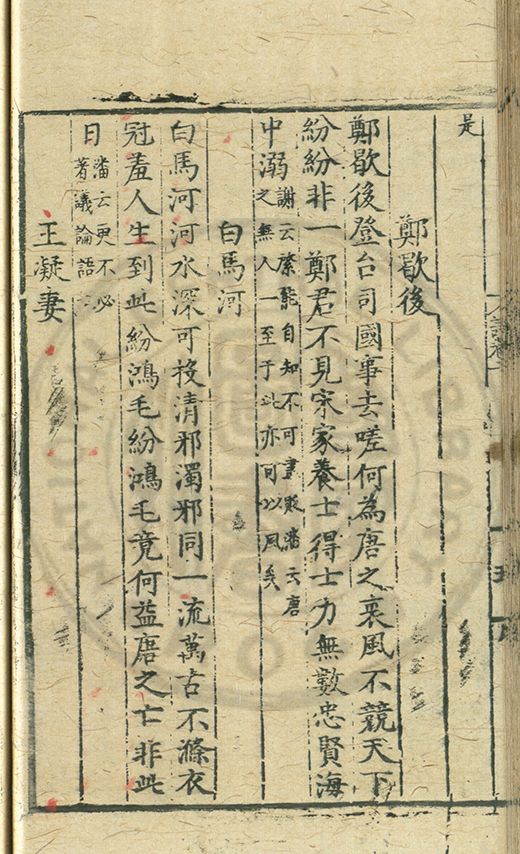 是
鄭歇後
鄭歇後登台司國事去嗟何為唐之衰風不競天下
紛紛非一鄭君不見宋家養士得士力無數忠賢海
中溺謝云綮能自知不可盡貶潘云唐
之無人一至于此亦可以風矣
白馬河
白馬河河水深可投清邪濁邪同一流萬古不滌衣
冠羞人生到此紛鴻毛紛鴻毛竟何益唐之亡非此
日潘云更不必
著議論語
王凝妻